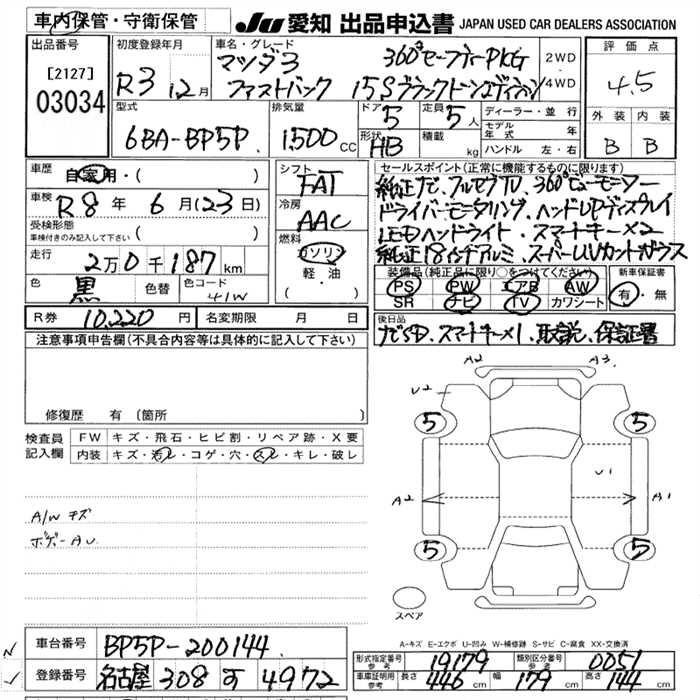 車内保管・守衛保管
JU 愛知 出品申込書 JAPAN USED CAR DEALERS ASSOCIATION
出品番号
[2127]
03034
初度登録年月
R3 12月
車名・グレード
マツダ3 360°セーフティーPKG
ファストバック 15Sブラックトーンエディション
2WD
4WD
評価点
4.5
型式
6BA-BP5P
排気量
1500 CC
ドア
5
定員
5人
形状
HB
積載
kg
ディーラー・並行
モデル年式 年
ハンドル 左・右
外装 内装
B B
車歴 自家用・( )
車検 R8年 6月(23日)
受検形態
車検付きのみ記入して下さい ( )
走行 2万0千187km
色 黒 色替 色コード 41W
シフト
FAT
冷房
AAC
燃料
ガソリン
軽・油
セールスポイント(正常に機能するものに限ります)
純正ナビ、フルセグTV、360°ビューモニター
ドライバーモニタリング、ヘッドUPディスプレイ
LEDヘッドライト、スマートキー×2
純正18インチアルミ、スーパーUVカットガラス
装備品(純正品に限り○をつけてください)
PS PW エアB AW
SR ナビ TV カワシート
新車保証書
有・無
R券 10,220円 名変期限 月 日
後日品
ナビSD、スマートキー1、取説、保証書
注意事項申告欄(不具合内容等は具体的に記入して下さい)
修復歴 有 (箇所
検査員記入欄
FW キズ・飛石・ヒビ割・リペア跡・X要
内装 キズ・汚レ・コゲ・穴・スレ・キレ・破レ
A/W キズ
ボデーAU
A2 A3
U2
5 5
A2 U1 A1
5 5
スペア
A-キズ E-エクボ U-凹み W-補修跡 S-サビ C-腐食 XX-交換済
車台番号 BP5P-200144
登録番号 名古屋 308 す 4972
形式指定番号 参考 19179 類別区分番号 参考 0051
車庫証明用 参考 長さ 446cm 幅 179cm 高さ 144cm